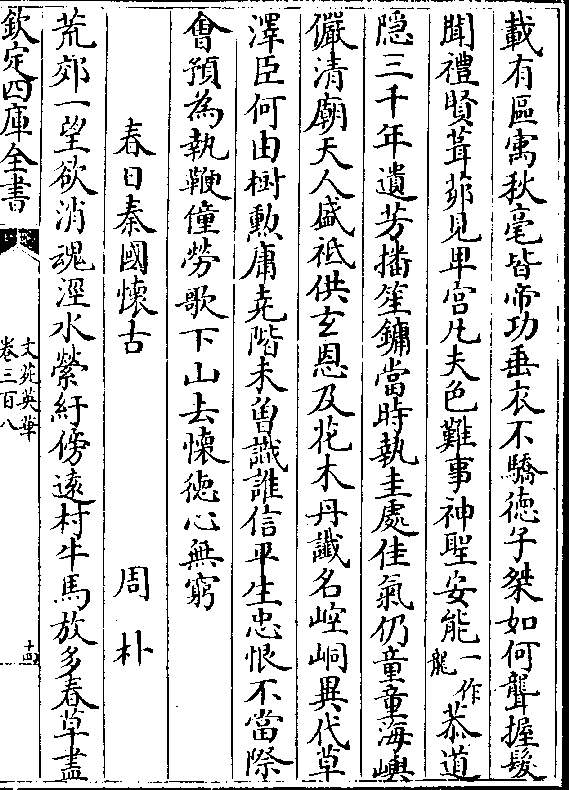 載有區寓秋毫皆帝功垂衣不驕徳子桀如何聾握髪
聞禮賢葺茆見卑宫凡夫色難事神聖安能一作龍恭道
隠三千年遺芳播笙鏞當時執圭處佳氣仍童童海嶼
儼清廟天人盛祗供玄恩及花木丹讖名崆峒異代草
澤臣何由樹勲庸堯階未曽識誰信平生忠恨不當際
㑹預為執鞭僮勞歌下山去懐徳心無窮
春日秦國懐古　周朴
荒郊一望欲消魂涇水縈紆傍逺村牛馬放多春草盡
欽定四庫全書
文苑英華
卷三百八
十四